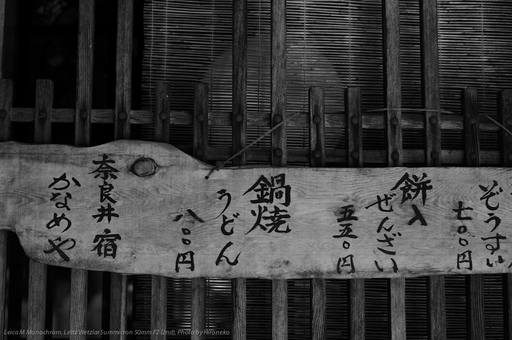 奈良井宿
かなめや
鍋焼
うどん
八〇〇円
餅入
ぜんざい
五五〇円
ぞうすい
七〇〇円
Leica M Monochrom, Leitz Wetzlar Summicron 50mm F2 (2nd), Photo by Hironeko